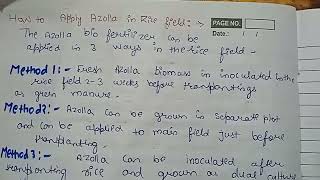 How to Apply Azolla in Rice field:→
PAGE NO.
Date: / /
The Azolla bio fertilizer can be
applied in 3 ways in the rice field -
Method 1:- Fresh Azolla biomass in inoculated in the
rice field 2-3 weeks before transplantings
as green manure.
Method 2:- Azolla can be grown in separate plot
and can be applied to main field just before
transplanting.
Method 3:- Azolla can be inoculated after
transplanting rice and grown as dual culture